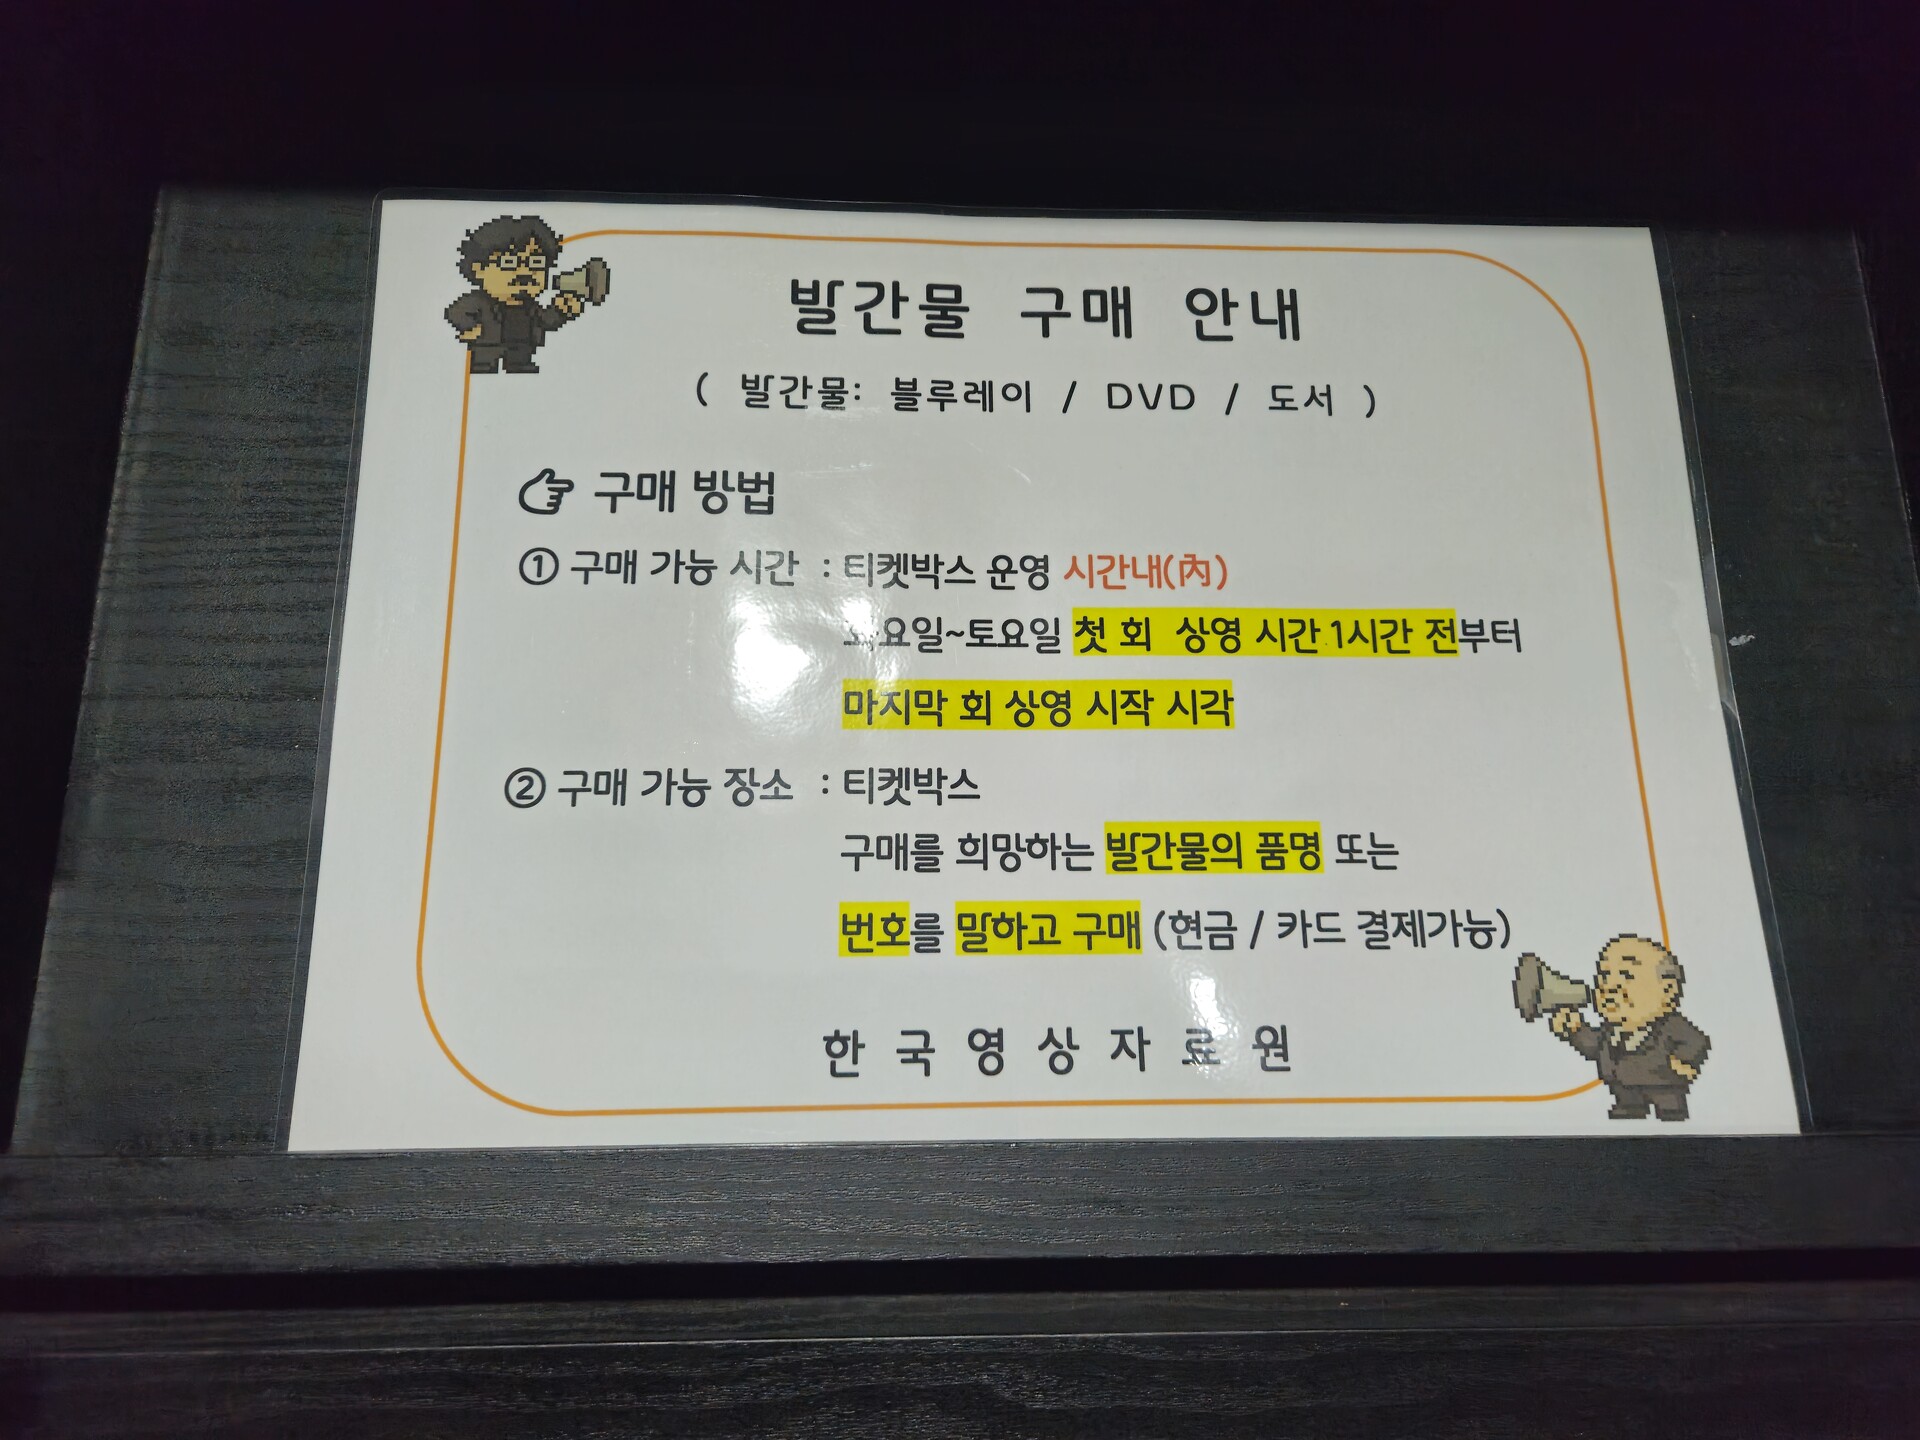 발간물 구매 안내
( 발간물: 블루레이 / DVD / 도서 )
구매 방법
① 구매 가능 시간 : 티켓박스 운영 시간내(內)
화요일~토요일 첫 회 상영 시간 1시간 전부터
마지막 회 상영 시작 시각
② 구매 가능 장소 : 티켓박스
구매를 희망하는 발간물의 품명 또는
번호를 말하고 구매 (현금 / 카드 결제가능)
한국영상자료원